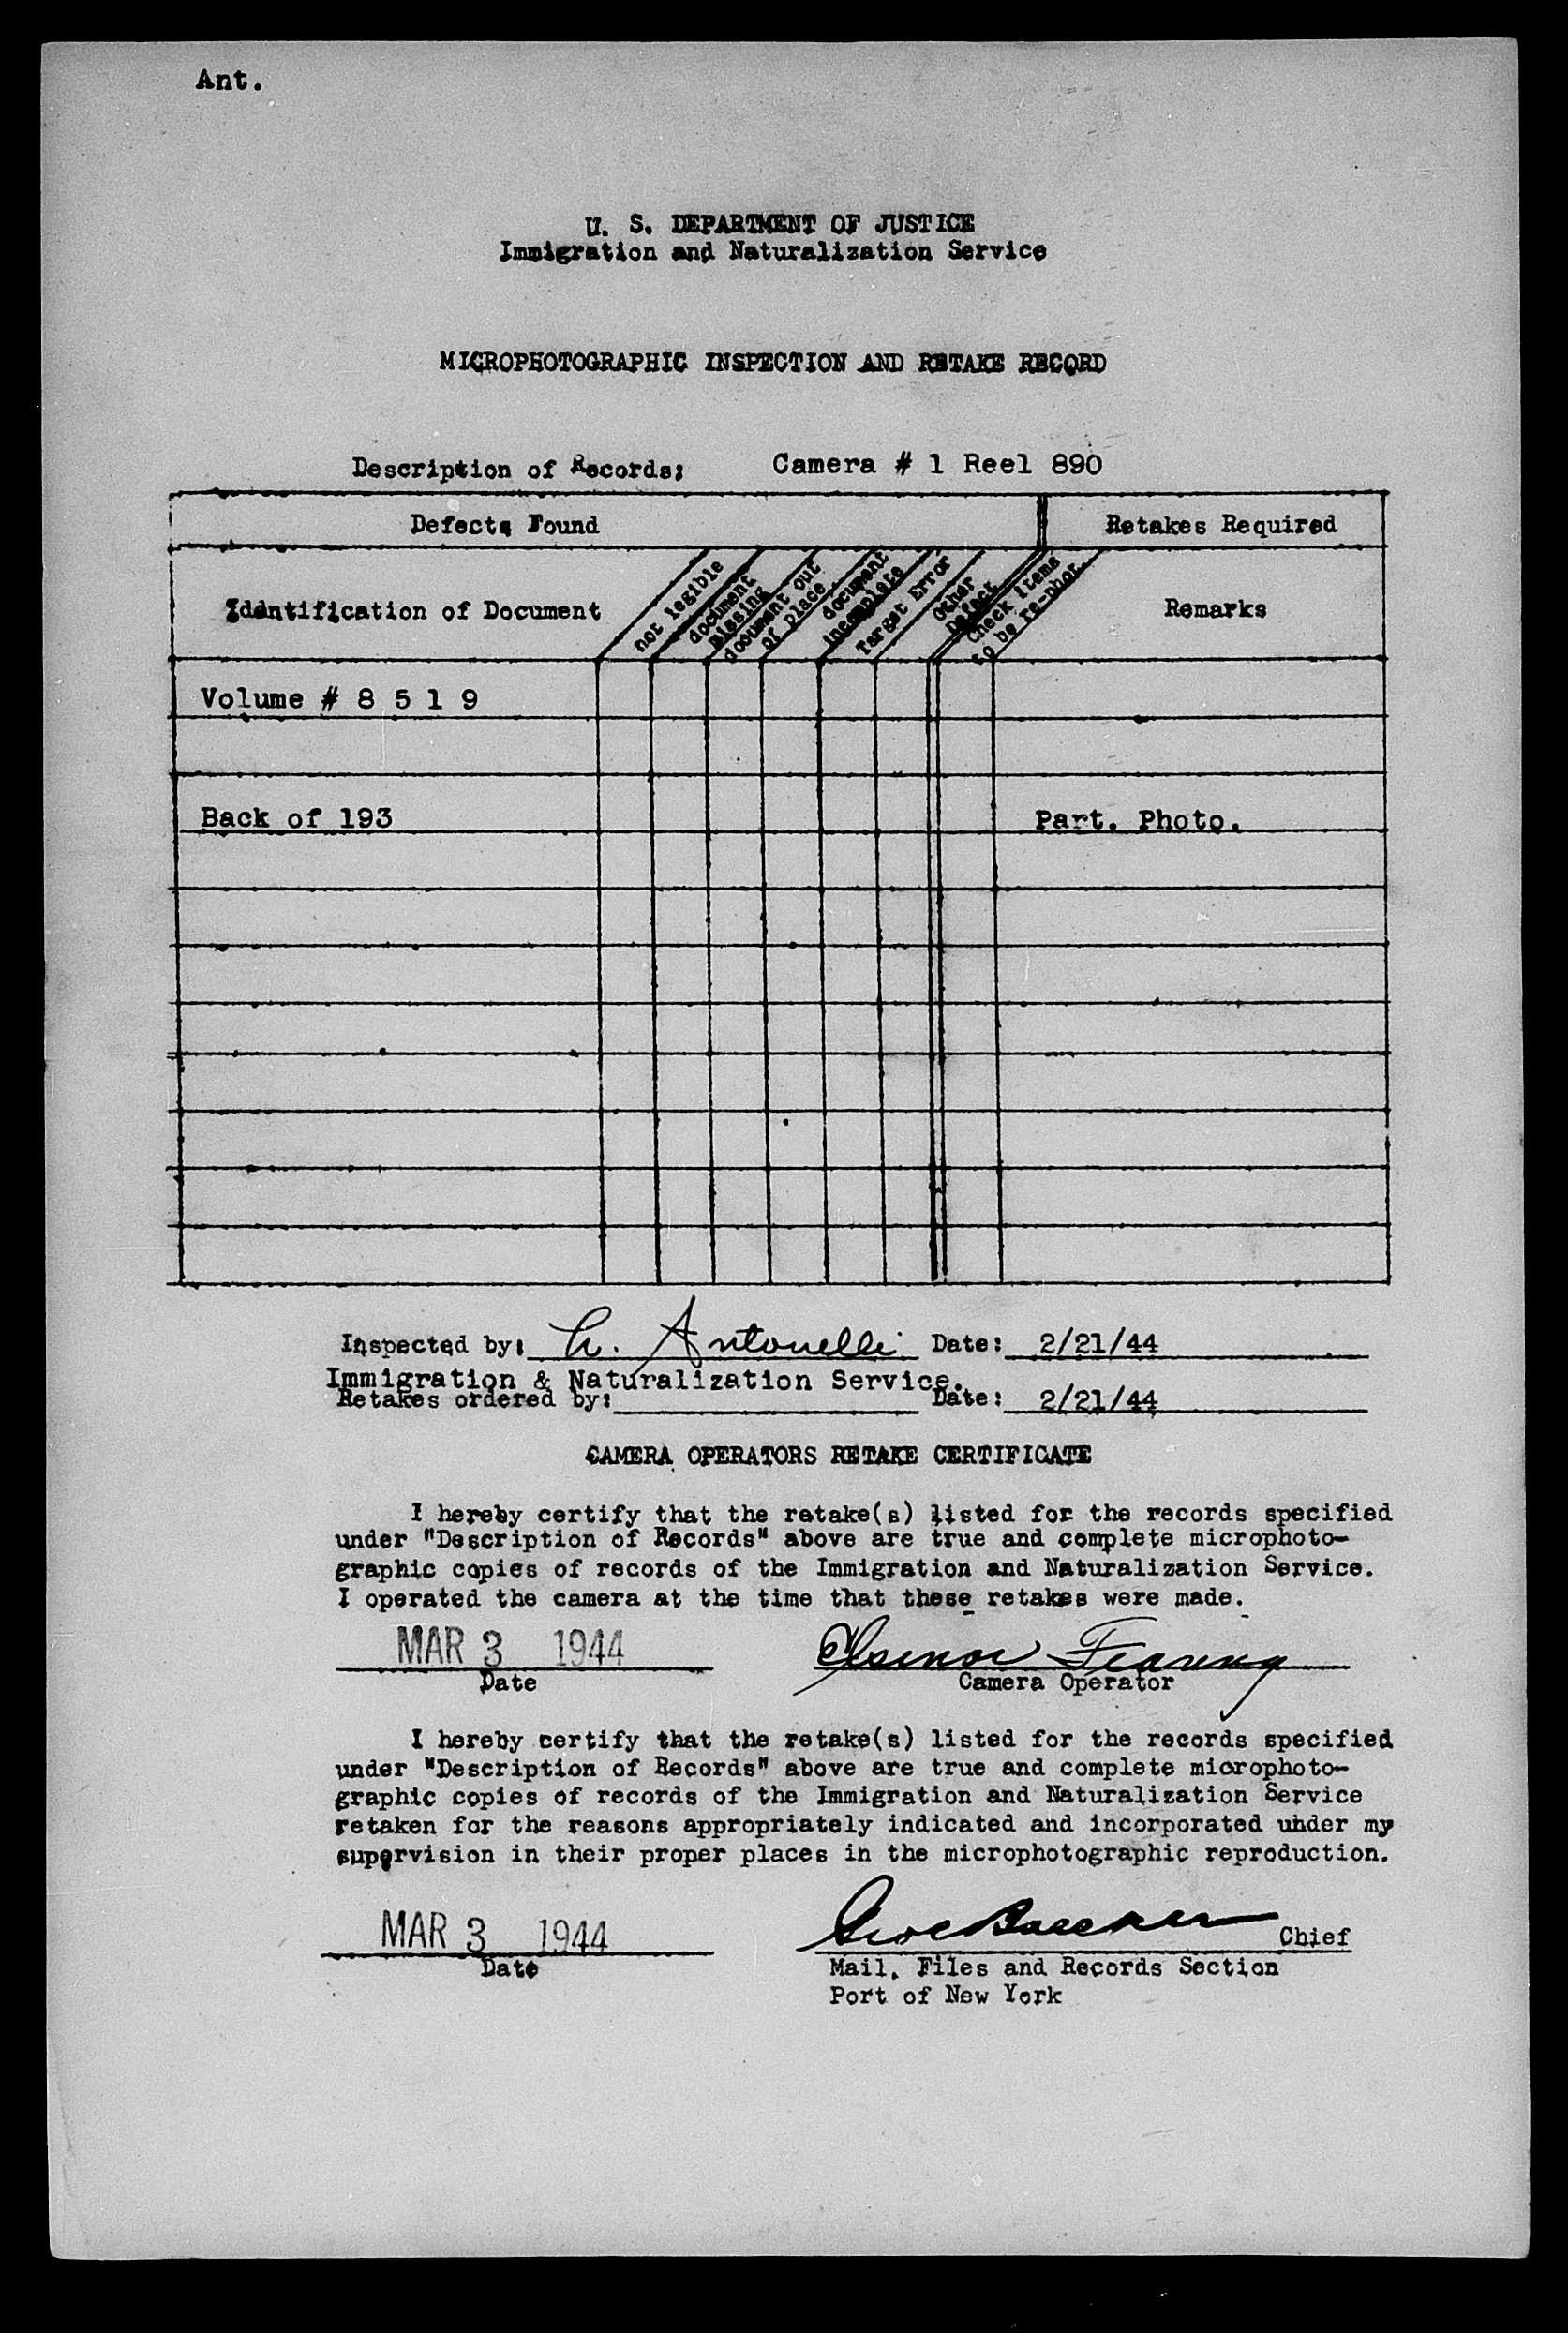 Ant.
U. S. DEPARTMENT OF JUSTICE
Immigration and Naturalization Service
MICROPHOTOGRAPHIC INSPECTION AND RETAKE RECORD
Description of Records: Camera # 1 Reel 890
Defects Found Retakes Required
Identification of Document
not legible
document missing
document out of place
document incomplete
Target Error
Other Defect
Check items to be re-phot.
Remarks
Volume # 8 5 1 9
Back of 193 Part. Photo.
Inspected by: Antonelli Date: 2/21/44
Immigration & Naturalization Service.
Retakes ordered by: Date: 2/21/44
CAMERA OPERATORS RETAKE CERTIFICATE
I hereby certify that the retake(s) listed for the records specified
under "Description of Records" above are true and complete microphoto-
graphic copies of records of the Immigration and Naturalization Service.
I operated the camera at the time that these retakes were made.
MAR 3 1944
Date Camera Operator
I hereby certify that the retake(s) listed for the records specified
under "Description of Records" above are true and complete microphoto-
graphic copies of records of the Immigration and Naturalization Service
retaken for the reasons appropriately indicated and incorporated under my
supervision in their proper places in the microphotographic reproduction.
MAR 3 1944 Chief
Date Mail, Files and Records Section
Port of New York